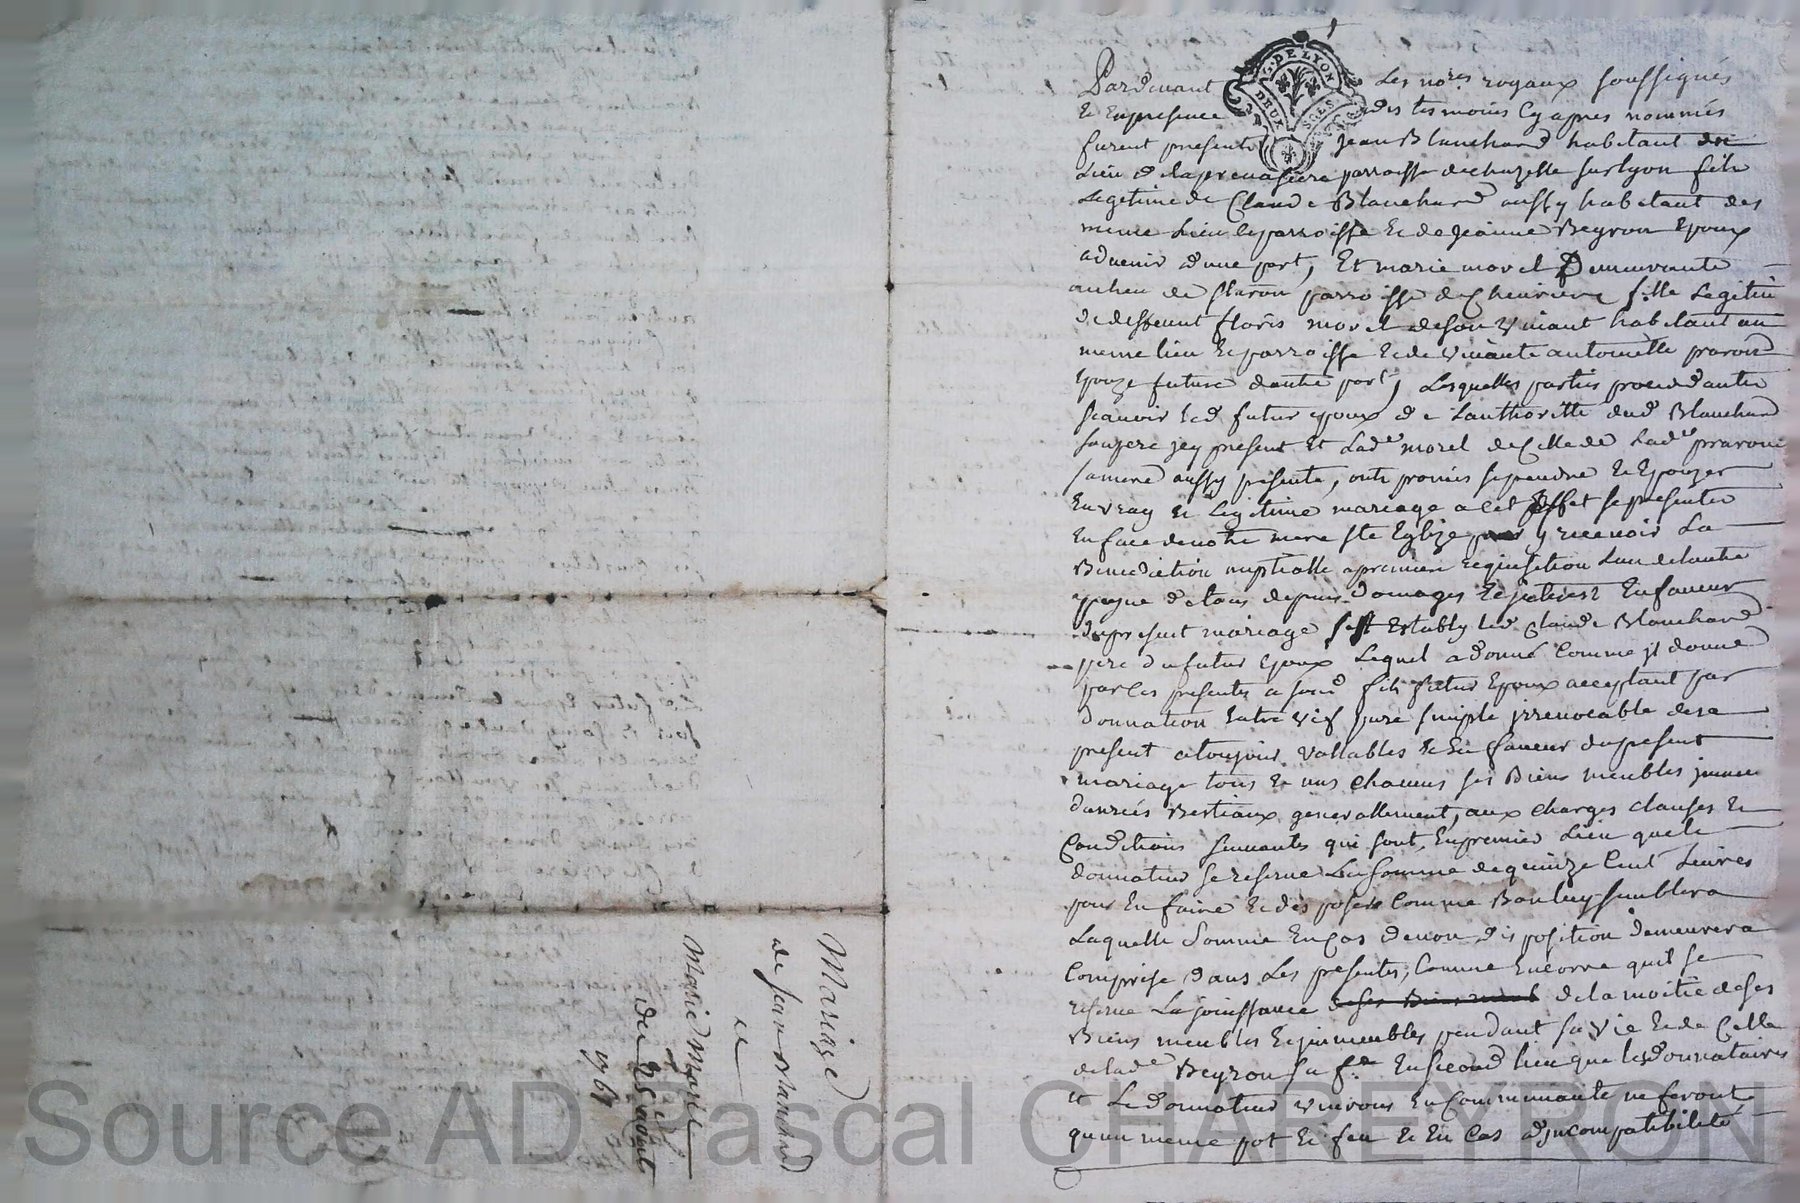 Mariage
de jean Blanchard
et
Marie Morel
du 25 aout
1767
G. DE LYON
DEUX SOLS
Pardevant Les no.res royaux soussignés
Et En presence des tesmoins Cy apres nommés
furent presents Jean Blanchard habitant du
Lieu de parroisse de chazelle sur lyon fils
Legitime de Claude Blanchard aussy habitant des
meme Lieu et parroisse Et de Jeanne Beyron Epoux
advenir d'une part, Et marie morel Demeurante
au lieu de parroisse de Chevriere fille Legitime
de deffeunt floris morel de son vivant habitant au
meme lieu Et parroisse Et de vivante antoinette
Epouze future dautre part, Lesquelles parties procedantes
scavoir led futur epoux de Lauthoritté dud Blanchard
son pere jcy present Et Lad.e morel de Celle de Lad.e
sa mere aussy presente, ont promis se prendre Et Epouzer
En vray Et Legitime mariage a cet Effet se presenter
En face de notre mere ste Eglize pour y recevoir La
Benediction nuptialle a premiere requisition Lun de lautre
a peyne de tous depens domages Et jnterest En faveur
du present mariage sest Estably led Claude Blanchard
pere du futur Epoux Lequel a donné Comme jl donne
par les presentes a son d fils futur Epoux acceptant par
donnation Entre vif pure simple jrrevocable des a
present a toujour vallables Et En faveur du present
mariage tous Et uns chacuns ses Biens meubles jmmeu
danrées Bestiaux generallement, aux charges clauses Et
Conditions suivantes qui sont, En premier Lieu que le
donnateur se reserve La somme de quinze Cent Livres
pour En faire Et disposer Comme Bon luy semblera
Laquelle Somme En Cas de non disposition demeurera
Comprise dans Les presentes, Comme Encorre quil se
reserve La jouissance de ses Biens meub de la moitié de ses
Biens meubles Et jmmeubles pendant sa vie Et de Celle
de lad.e Beyron sa f.e En second lieu que les donnataires
et Le donnateur vivrons En Communauté ne feront
qu'un meme pot Et feu Et En Cas djncompatibilité
Source AD Pascal CHAREYRON